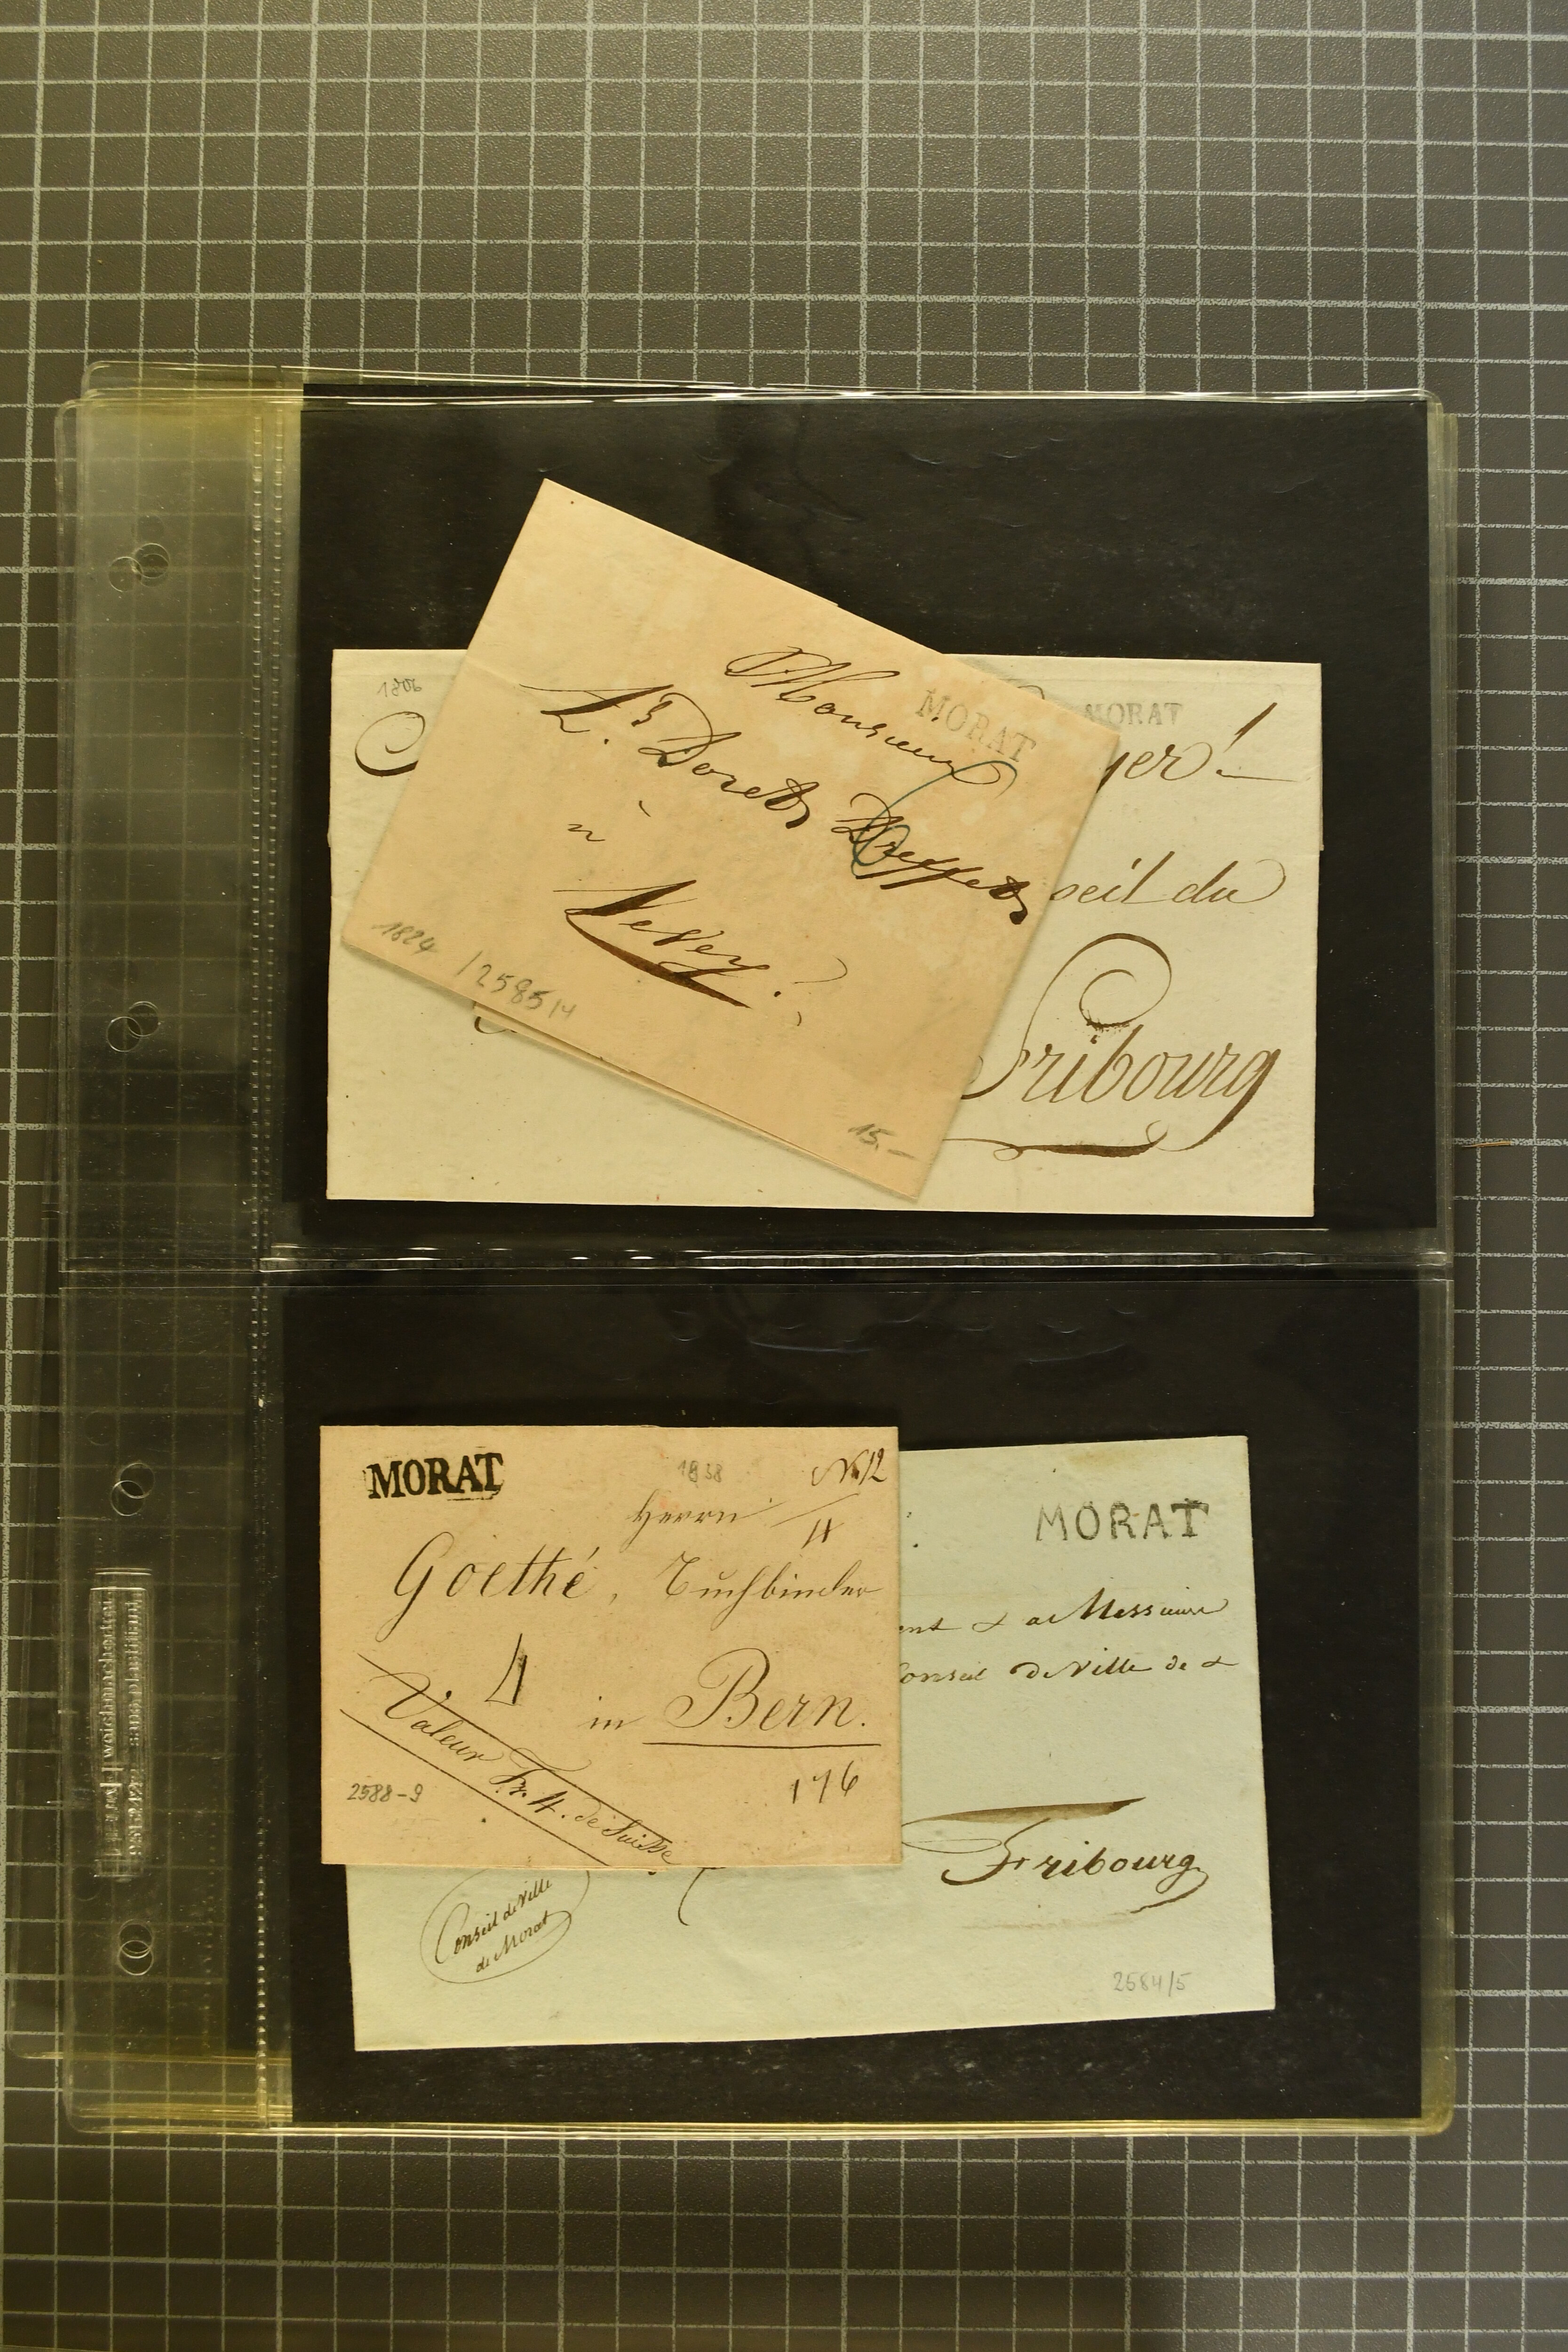 1806
MORAT
yer!
seil du
Fribourg
MORAT
Monsieur
à
Vevey.
1824
15.-
MORAT
1838
No 12
Herrn
4
Goethé, Buchbinder
4
in Bern.
Valeur Fr. 4. de Suisse
176
2588-9
MORAT
ent & a Messieurs
Conseil de Ville de &
Fribourg
Conseil de Ville
de Morat
2584/5